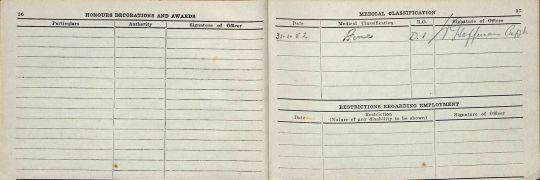 56
HONOURS DECORATIONS AND AWARDS
Particulars Authority Signature of Officer
MEDICAL CLASSIFICATION 57
Date Medical Classification R.O. Signature of Officer
D.1 Capt
RESTRICTIONS REGARDING EMPLOYMENT
Date Restriction (Nature of any disability to be shown) Signature of Officer